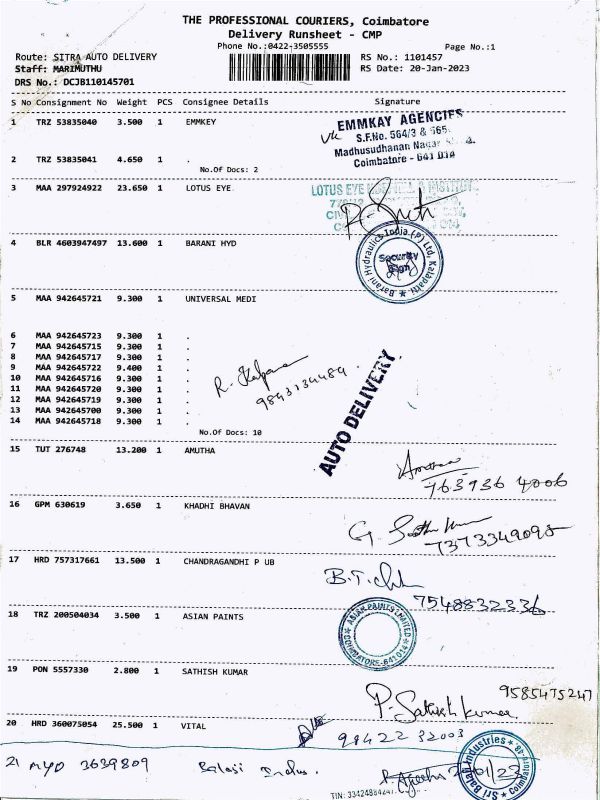 THE PROFESSIONAL COURIERS, Coimbatore
Delivery Runsheet - CMP
Phone No.:0422-3505555
Page No.:1
Route: SITRA AUTO DELIVERY
RS No.: 1101457
Staff: MARIMUTHU
RS Date: 20-Jan-2023
DRS No.: DCJB110145701
S No Consignment No Weight PCS Consignee Details Signature
1 TRZ 53835040 3.500 1 EMMKEY
EMMKAY AGENCIES
S.F.No. 564/3 & 565
Madhusudhanan Nagar
Coimbatore - 641 014
2 TRZ 53835041 4.650 1 .
No.Of Docs: 2
3 MAA 297924922 23.650 1 LOTUS EYE
LOTUS EYE
4 BLR 4603947497 13.600 1 BARANI HYD
Barani Hydraulics India (P) Ltd, Kalapatti
Security
Sign
5 MAA 942645721 9.300 1 UNIVERSAL MEDI
6 MAA 942645723 9.300 1 .
7 MAA 942645715 9.300 1 .
8 MAA 942645717 9.300 1 .
9 MAA 942645722 9.400 1 .
10 MAA 942645716 9.300 1 .
11 MAA 942645720 9.300 1 .
12 MAA 942645719 9.300 1 .
13 MAA 942645700 9.300 1 .
14 MAA 942645718 9.300 1 .
No.Of Docs: 10
R. Kalpana
9843134484
AUTO DELIVERY
15 TUT 276748 13.200 1 AMUTHA
Amutha
763936 4006
16 GPM 630619 3.650 1 KHADHI BHAVAN
7373349098
17 HRD 757317661 13.500 1 CHANDRAGANDHI P UB
B.T.
7548832336
18 TRZ 200504034 3.500 1 ASIAN PAINTS
ASIAN PAINTS LIMITED
COIMBATORE-641014
19 PON 5557330 2.800 1 SATHISH KUMAR
P. Sathish kumar
9585475247
20 HRD 360075054 25.500 1 VITAL
98422 32003
21 MYD 3639809 Balaji Indus.
Sri Balaji Industries